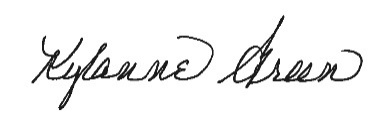 Kylanne Green